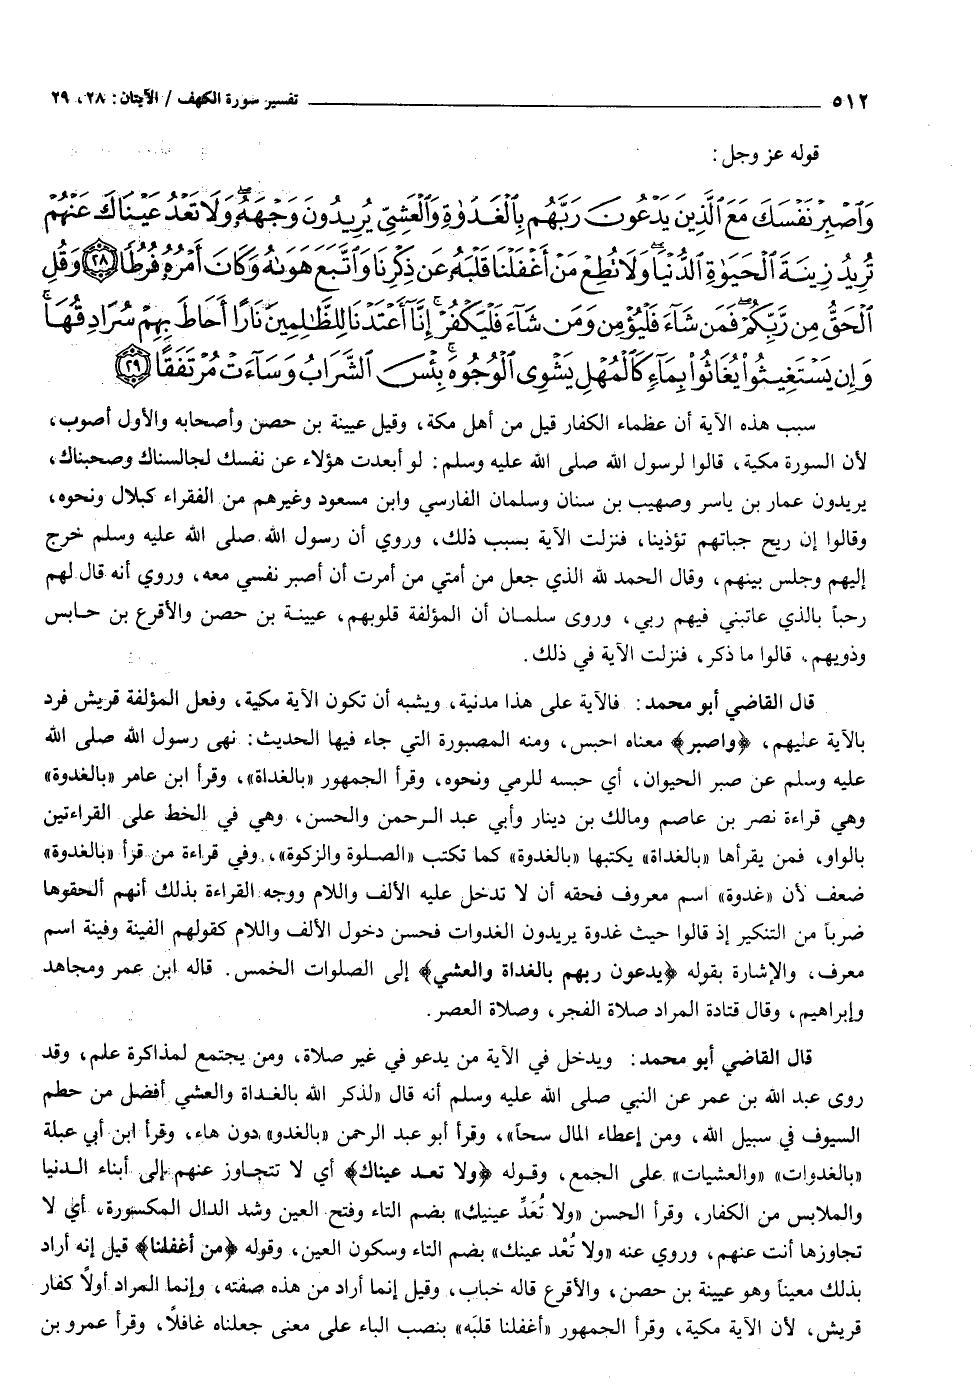 ٥١٢ ـــــــــــ تفسير سورة الكهف / الآيتان : ٢٨ ، ٢٩
قوله عز وجل :
وَٱصْبِرْ نَفْسَكَ مَعَ ٱلَّذِينَ يَدْعُونَ رَبَّهُم بِٱلْغَدَوٰةِ وَٱلْعَشِىِّ يُرِيدُونَ وَجْهَهُۥ وَلَا تَعْدُ عَيْنَاكَ عَنْهُمْ
تُرِيدُ زِينَةَ ٱلْحَيَوٰةِ ٱلدُّنْيَا وَلَا تُطِعْ مَنْ أَغْفَلْنَا قَلْبَهُۥ عَن ذِكْرِنَا وَٱتَّبَعَ هَوَىٰهُ وَكَانَ أَمْرُهُۥ فُرُطًا ﴿٢٨﴾ وَقُلِ
ٱلْحَقُّ مِن رَّبِّكُمْ فَمَن شَآءَ فَلْيُؤْمِن وَمَن شَآءَ فَلْيَكْفُرْ إِنَّآ أَعْتَدْنَا لِلظَّٰلِمِينَ نَارًا أَحَاطَ بِهِمْ سُرَادِقُهَا
وَإِن يَسْتَغِيثُوا۟ يُغَاثُوا۟ بِمَآءٍ كَٱلْمُهْلِ يَشْوِى ٱلْوُجُوهَ بِئْسَ ٱلشَّرَابُ وَسَآءَتْ مُرْتَفَقًا ﴿٢٩﴾
سبب هذه الآية أن عظماء الكفار قيل من أهل مكة ، وقيل عيينة بن حصن وأصحابه والأول أصوب ،
لأن السورة مكية ، قالوا لرسول الله صلى الله عليه وسلم : لو أبعدت هؤلاء عن نفسك لجالسناك وصحبناك ،
يريدون عمار بن ياسر وصهيب بن سنان وسلمان الفارسي وابن مسعود وغيرهم من الفقراء كبلال ونحوه ،
وقالوا إن ريح جباتهم تؤذينا ، فنزلت الآية بسبب ذلك ، وروي أن رسول الله صلى الله عليه وسلم خرج
إليهم وجلس بينهم ، وقال الحمد لله الذي جعل من أمتي من أمرت أن أصبر نفسي معه ، وروي أنه قال لهم
رحباً بالذي عاتبني فيهم ربي ، وروى سلمـان أن المؤلفة قلوبهم ، عيينـة بن حصن والأقرع بن حـابس
وذويهم ، قالوا ما ذكر ، فنزلت الآية في ذلك .
قال القاضي أبو محمد : فالآية على هذا مدنية ، ويشبه أن تكون الآية مكية ، وفعل المؤلفة قريش فرد
بالآية عليهم ، ﴿واصبر﴾ معناه احبس ، ومنه المصبورة التي جاء فيها الحديث : نهى رسول الله صلى الله
عليه وسلم عن صبر الحيوان ، أي حبسه للرمي ونحوه ، وقرأ الجمهور «بالغداة» ، وقرأ ابن عامر «بالغدوة»
وهي قراءة نصر بن عاصم ومالك بن دينار وأبي عبد الـرحمن والحسن ، وهي في الخط على القراءتين
بالواو ، فمن يقرأها «بالغداة» يكتبها «بالغدوة» كما تكتب «الصلوة والزكوة» ، وفي قراءة من قرأ «بالغدوة»
ضعف لأن «غدوة» اسم معروف فحقه أن لا تدخل عليه الألف واللام ووجه القراءة بذلك أنهم ألحقوها
ضرباً من التنكير إذ قالوا حيث غدوة يريدون الغدوات فحسن دخول الألف واللام كقولهم الفينة وفينة اسم
معرف ، والإشارة بقوله ﴿يدعون ربهم بالغداة والعشي﴾ إلى الصلوات الخمس . قاله ابن عمر ومجاهد
وإبراهيم ، وقال قتادة المراد صلاة الفجر ، وصلاة العصر .
قال القاضي أبو محمد : ويدخل في الآية من يدعو في غير صلاة ، ومن يجتمع لمذاكرة علم ، وقد
روى عبد الله بن عمر عن النبي صلى الله عليه وسلم أنه قال «لذكر الله بالغـداة والعشي أفضل من حطم
السيوف في سبيل الله ، ومن إعطاء المال سحاً» ، وقرأ أبو عبد الرحمن «بالغدو» دون هاء ، وقرأ ابن أبي عبلة
«بالغدوات» «والعشيات» على الجمع ، وقـوله ﴿ولا تعـد عيناك﴾ أي لا تتجـاوز عنهم إلى أبناء الـدنيا
والملابس من الكفار ، وقرأ الحسن «ولا تُعَدِّ عينيك» بضم التاء وفتح العين وشد الدال المكسورة ، أي لا
تجاوزها أنت عنهم ، وروي عنه «ولا تُعْد عينك» بضم التاء وسكون العين ، وقوله ﴿من أغفلنا﴾ قيل إنه أراد
بذلك معيناً وهو عيينة بن حصن ، والأقرع قاله خباب ، وقيل إنما أراد من هذه صفته ، وإنما المراد أولاً كفار
قريش ، لأن الآية مكية ، وقرأ الجمهور «أغفلنا قلبَه» بنصب الباء على معنى جعلناه غافلاً ، وقرأ عمرو بن